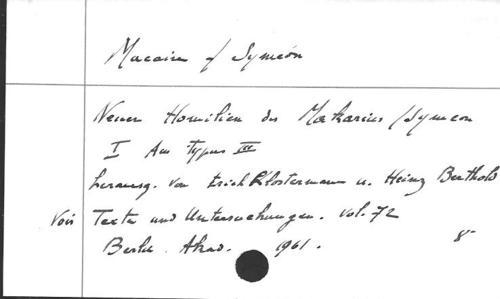 Macaire / Symeon
Neuen Homilien des Makarius / Symeon
I Aus Typus III
herausg. von Erich Klostermann u. Heinz Berthold
Vois Texte und Untersuchungen. vol. 72
Berlin. Akad. 1961. 8°